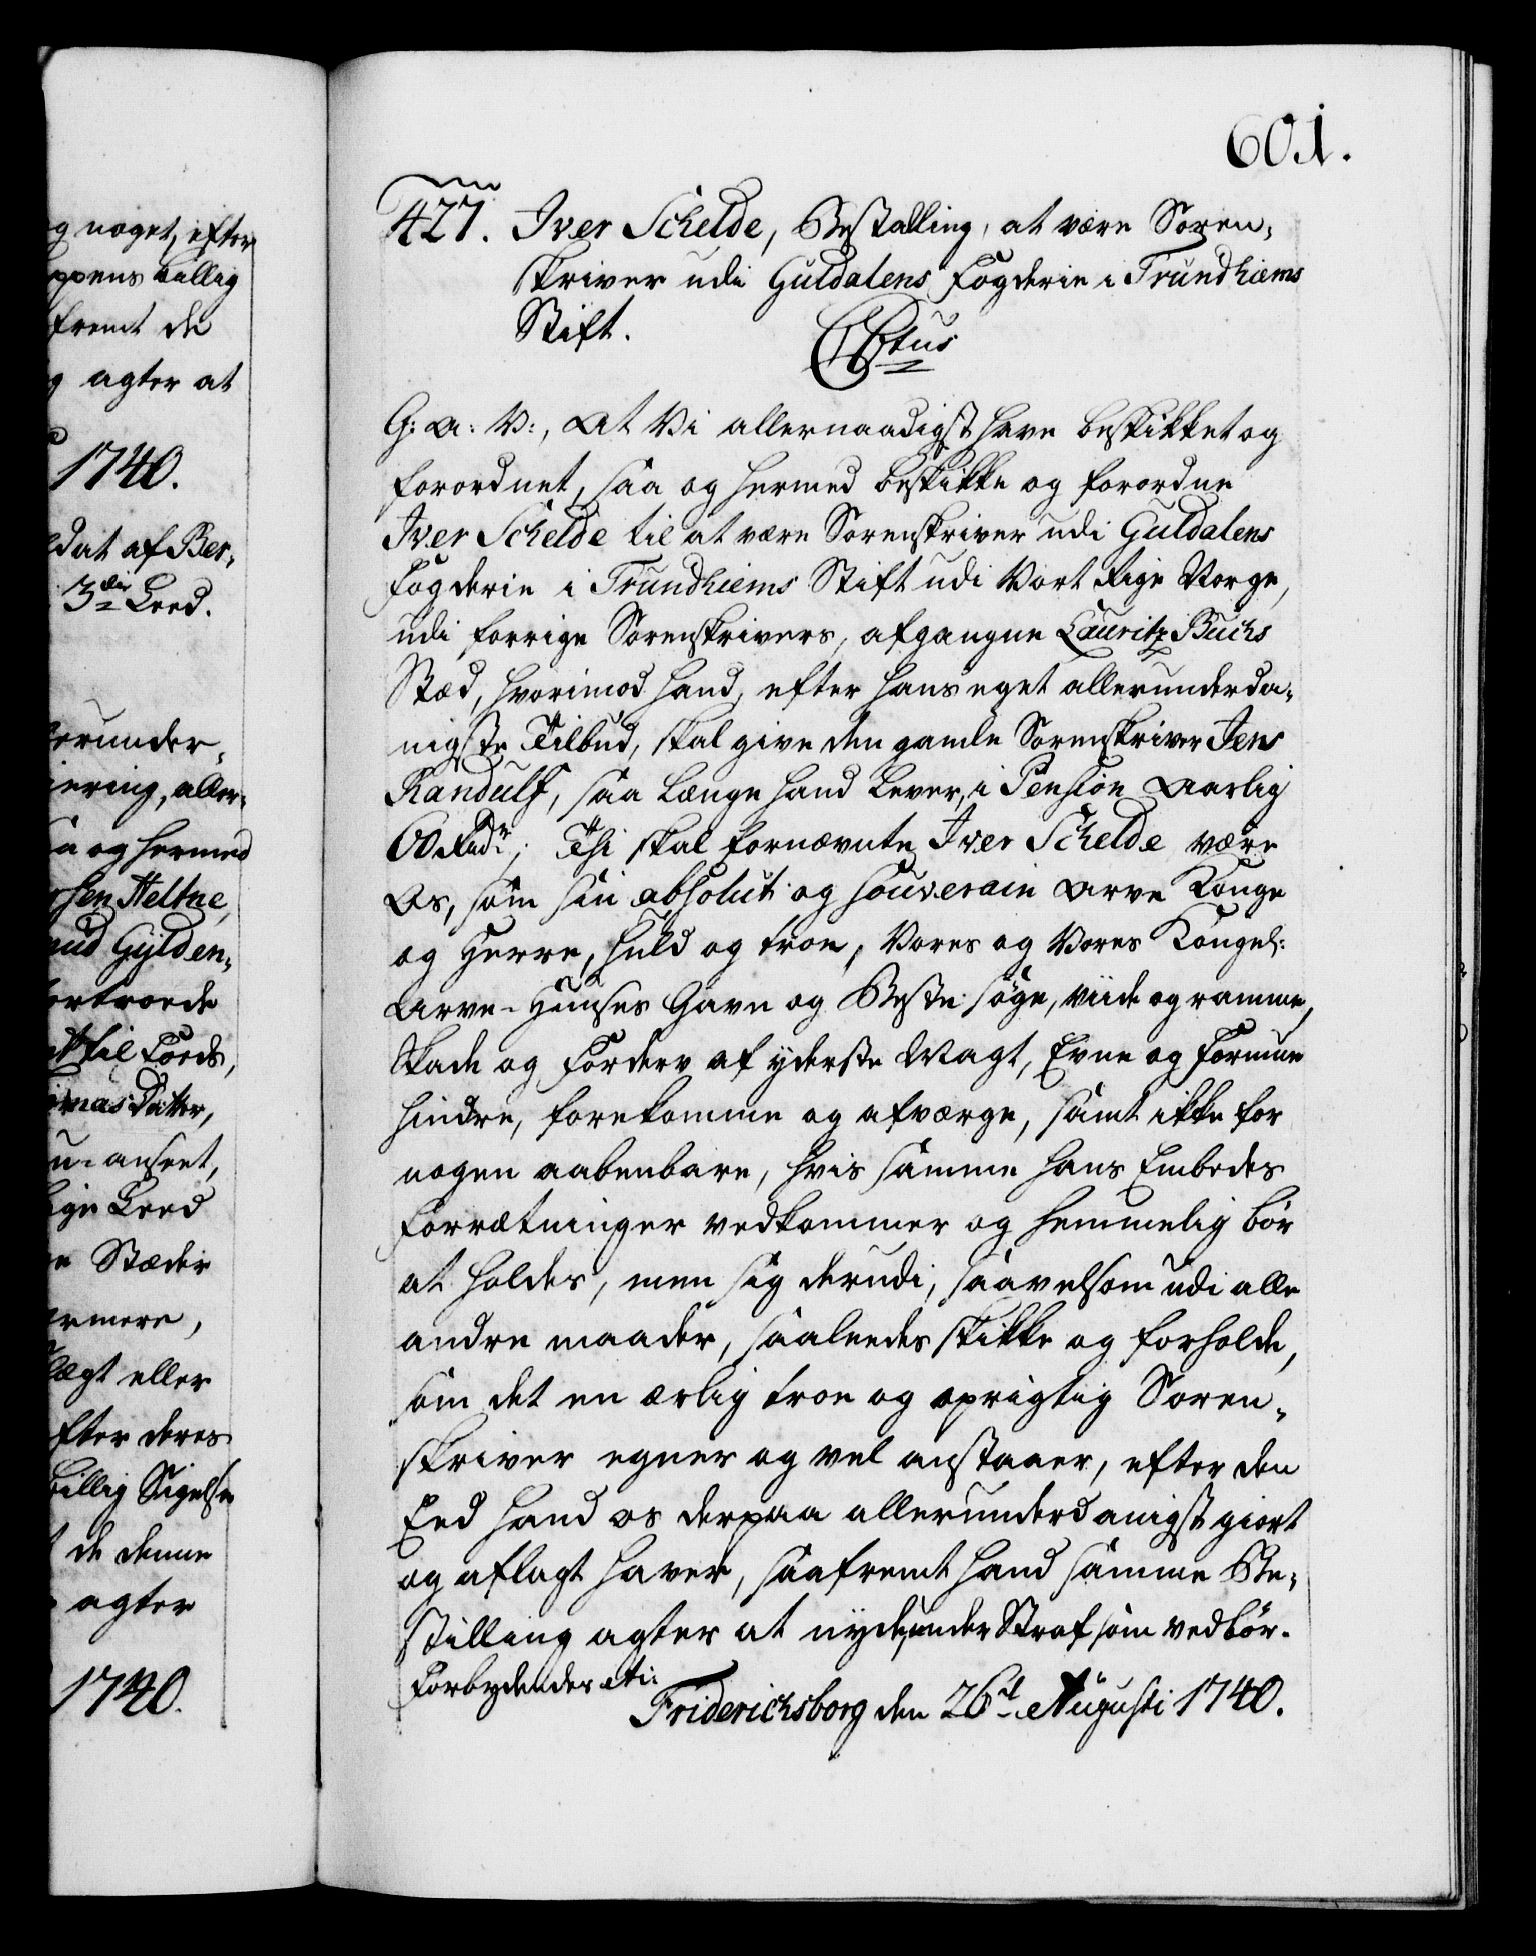 g noget, efter
ppens billig
fremt de
g agter at
1740.
dat af Ber„
3die Leed.
erunder„
iering, aller„
a og hermed
sen Heltne,
ud Gylden„
ortroede
til Fords,
mas Datter,
u-anseet,
ige Leed
e Stæder
ermere,
lægt eller
fter deres
billig Sigelse
de denne
agter
1740.
601.
427. Iver Schelde, Bestalling, at være Soren„
skriver udi Guldalens Fogderie i Trundhiems
Stift.
CStus
G: A: V:, At Vi allernaadigst have beskikket og
forordnet, saa og hermed beskikke og forordne
Iver Schelde til at være Sorenskriver udi Guldalens
Fogderie i Trundhiems Stift udi Vort Rige Norge,
udi forrige Sorenskrivers, afgangne Lauritz Buchs
Stæd, hvorimod hand, efter hans eget allerunderda„
nigste Tilbud, skal give den gamle Sorenskriver Jens
Randulf, saa længe hand lever, i Pension aarlig
60 Rdr; Thi skal fornævnte Iver Schelde være
Os, som sin absolut og souverain Arve Konge
og Herre, huld og troe, Vores og Vores Kongel:
Arve-Huuses Gavn og Beste søge, viide og ramme,
Skade og Forderv af yderste Magt, Evne og Formue
hindre, forekomme og afværge, samt ikke for
nogen aabenbare, hvis samme hans Embedes
Forrætninger vedkommer og hemmelig bør
at holdes, men sig derudi, saavelsom udi alle
andre maader, saaleedes skikke og forholde,
som det en ærlig troe og oprigtig Soren„
skriver egner og vel anstaaer, efter den
Eed hand os derpaa allerunderdanigst giort
og aflagt haver, saafremt hand samme Be„
stilling agter at nyde, under Straf som vedbør.
Forbydendes etc:
Friderichsborg den 26d Augusti 1740.